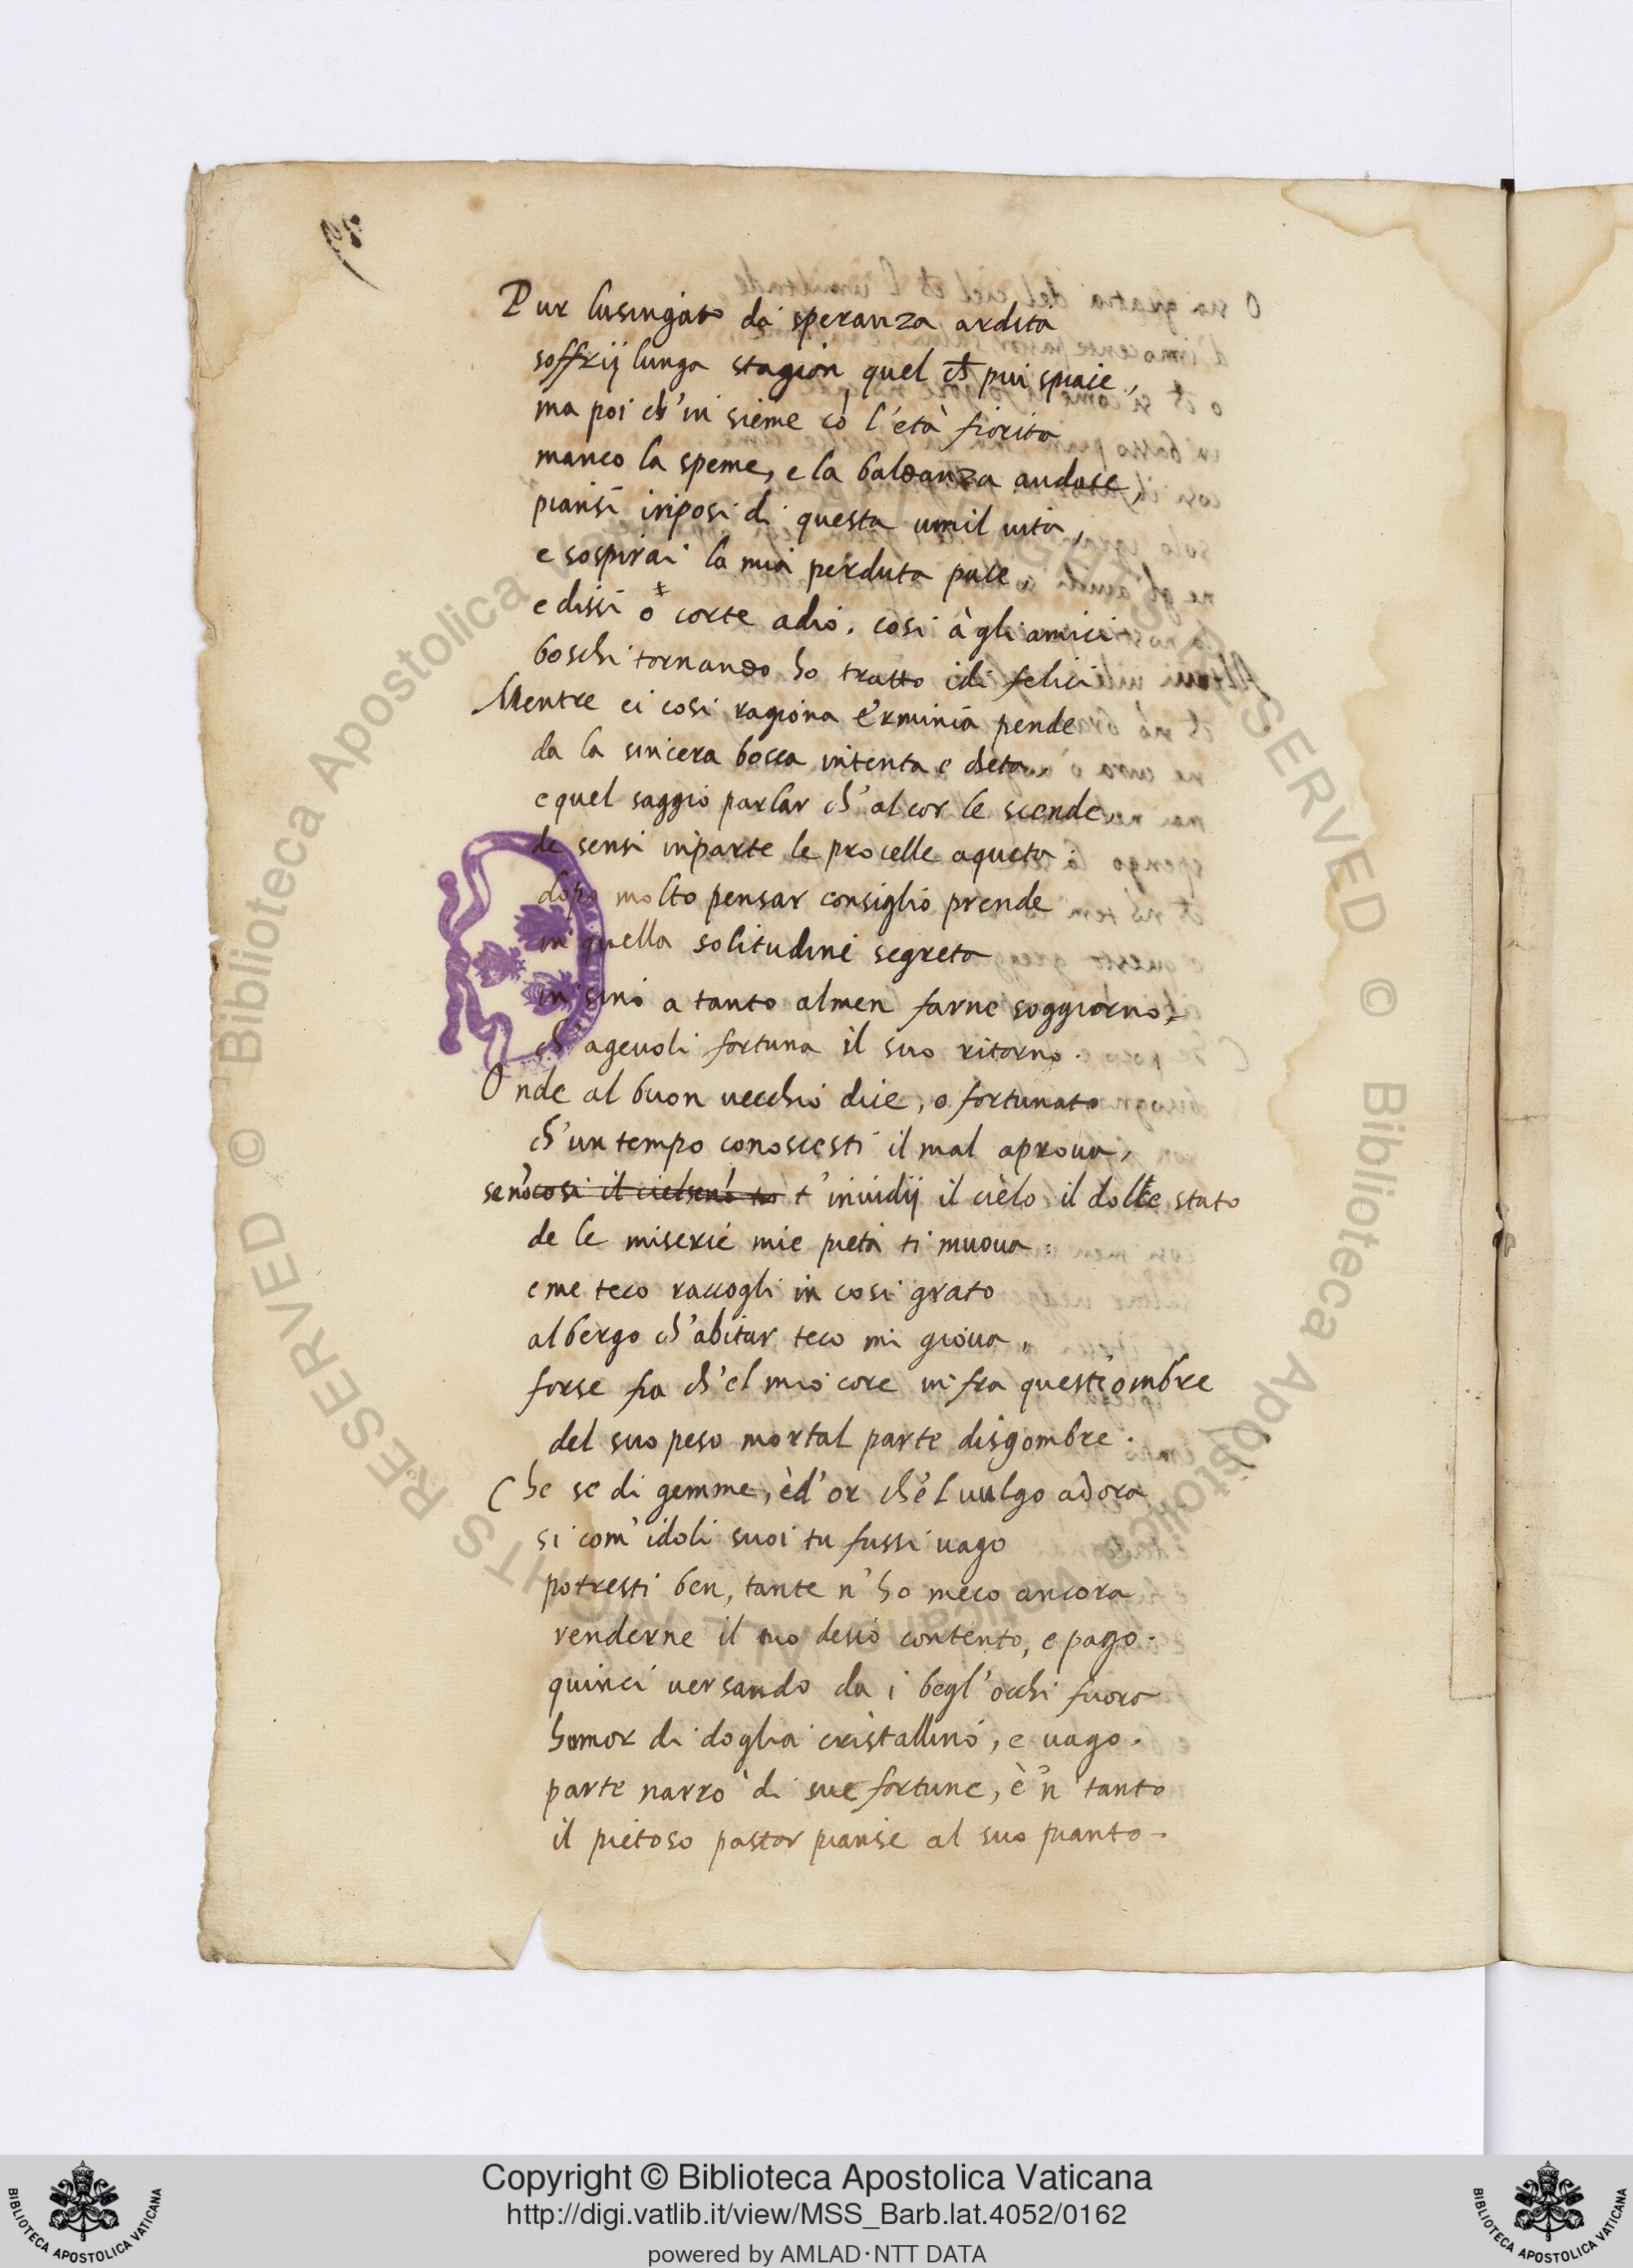 Pur lusingato da speranza ardita
soffrij lunga stagion quel ch̄ piu spiace,
ma poi ch'in sieme cō l'età fiorita
manco la speme, e la baldanza audace,
piansi iriposi di questa umil vita,
e sospirai la mia perduta pace,
e dissi o corte adio. cosi à gli amici
boschi tornando ho tratto i dì felici
Mentre ei cosi ragiona Erminia pende
da la sincera bocca intenta e cheta
e quel saggio parlar ch'al cor le scende
de sensi inparte le procelle aqueta.
dopo molto pensar consiglio prende
in quella solitudine segreta
in sino a tanto almen farne soggiorno,
ch'agevoli fortuna il suo ritorno.
Onde al buon vecchio dice, o fortunato
ch'un tempo conoscesti il mal aprova,
se nō cosi il ciel se nō t'invidij il cielo il dolce stato
de le miserie mie pietà ti muova.
e me teco raccogli in cosi grato
albergo ch'abitar teco mi giova,
forse fia ch'el mio core infra quest'ombre
del suo peso mortal parte disgombre.
Che se di gemme, è d'or ch'el vulgo adora
si com'idoli suoi tu fussi vago
potresti ben, tante n'ho meco ancora
renderne il tuo desio contento, e pago.
quinci versando da i begl'occhi fuora
humor di doglia cristallino, e vago.
parte narrò di sue fortune, è'n tanto
il pietoso pastor pianse al suo pianto.
BIBLIOTECA APOSTOLICA VATICANA
Copyright © Biblioteca Apostolica Vaticana
http://digi.vatlib.it/view/MSS_Barb.lat.4052/0162
powered by AMLAD·NTT DATA
BIBLIOTECA APOSTOLICA VATICANA